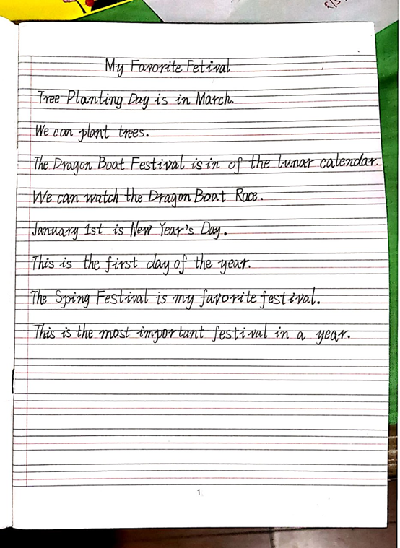 My Favorite Fetival
Tree Planting Day is in March.
We can plant trees.
The Dragon Boat Festival is in of the lunar calendar.
We can watch the Dragon Boat Race.
January 1st is New Year's Day.
This is the first day of the year.
The Sping Festival is my favorite festival.
This is the most important festival in a year.